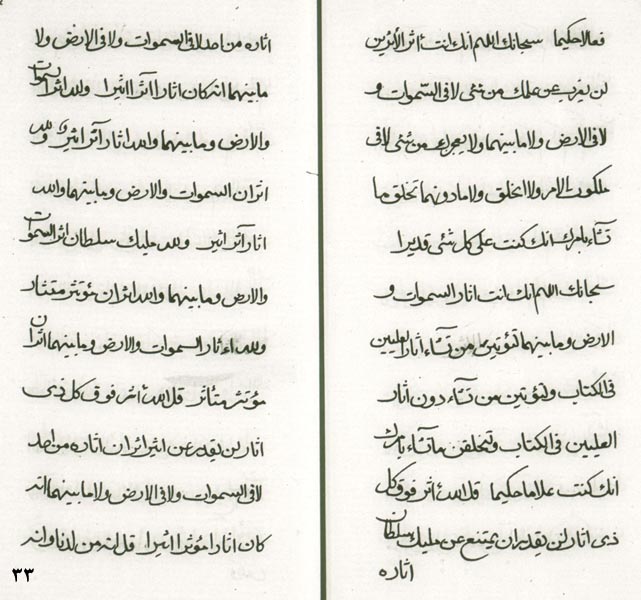 فعالا حكيما سبحانك اللهم انك انت أثر الأثرين
لن يعزب عن علمك من شئ لا في السموات و
لا في الارض ولا ما بينهما ولا يعجزك من شئ لا في
ملكوت الامر والخلق ولا ما دونهما تخلق ما
تشاء بامرك انك كنت على كل شئ قديرا
سبحانك اللهم انك انت اثار السموات و
الارض وما بينهما لتؤتين من تشاء اثار العليين
في الكتاب ولتؤتين من تشاء دون اثار
العليين في الكتاب ولتخلقن ما تشاء بامرك
انك كنت علاما حكيما قل الله أثر فوق كل
ذي اثار لن يقدر ان يمتنع عن مليك سلطان
اثاره
اثاره من احد لا في السموات ولا في الارض ولا
ما بينهما انه كان اثارا آثرا اثيرا ولله اثر السموات
والارض وما بينهما والله اثار آثر اثير ولله
اثران السموات والارض وما بينهما والله
اثار آثر اثير ولله مليك سلطان اثر السموات
والارض وما بينهما والله اثران مؤتثر متثار
ولله اءثار السموات والارض وما بينهما اثران
مؤتثر متأثر قل الله أثر فوق كل ذي
اثار لن يقدر عن اثير اثران اثاره من احد
لا في السموات ولا في الارض ولا ما بينهما انه
كان اثارا مؤثرا اثيرا قل انه من لدنا وانه
٣٣